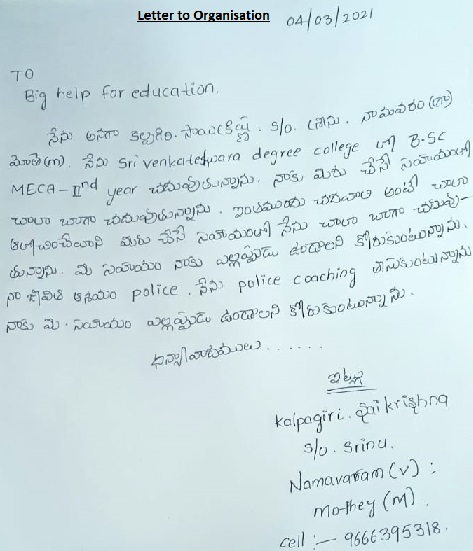 Letter to Organisation 04/03/2021
TO
Big help for education.
నేను కల్పగిరి. సాయిక్రిష్ణ. S/o. శ్రీను. నామవరం (గ్రా)
మోతె (m). నేను Sri venkateshwara degree college లో B-SC
MECA - IInd year చదువుతున్నాను. నాకు మీరు చేసే సహాయంతో
చాలా బాగా చదువుతున్నాను. చదవాలి అంటే చాలా
మీరు చేసే సహాయంతో నేను చాలా బాగా చదువు-
తున్నాను. మీ సహాయం నాకు ఎల్లప్పుడు ఉండాలని కోరుకుంటున్నాను.
నా police. నేను police coaching తీసుకుంటున్నాను
నాకు మీ. సహాయం ఎల్లప్పుడు ఉండాలని కోరుకుంటున్నాను.
ధన్యవాదములు......
ఇట్లు
Kalpagiri. Sai krishna
S/o. Srinu.
Namavaram (v) :
Mothey (M).
cell :- 9666395318.